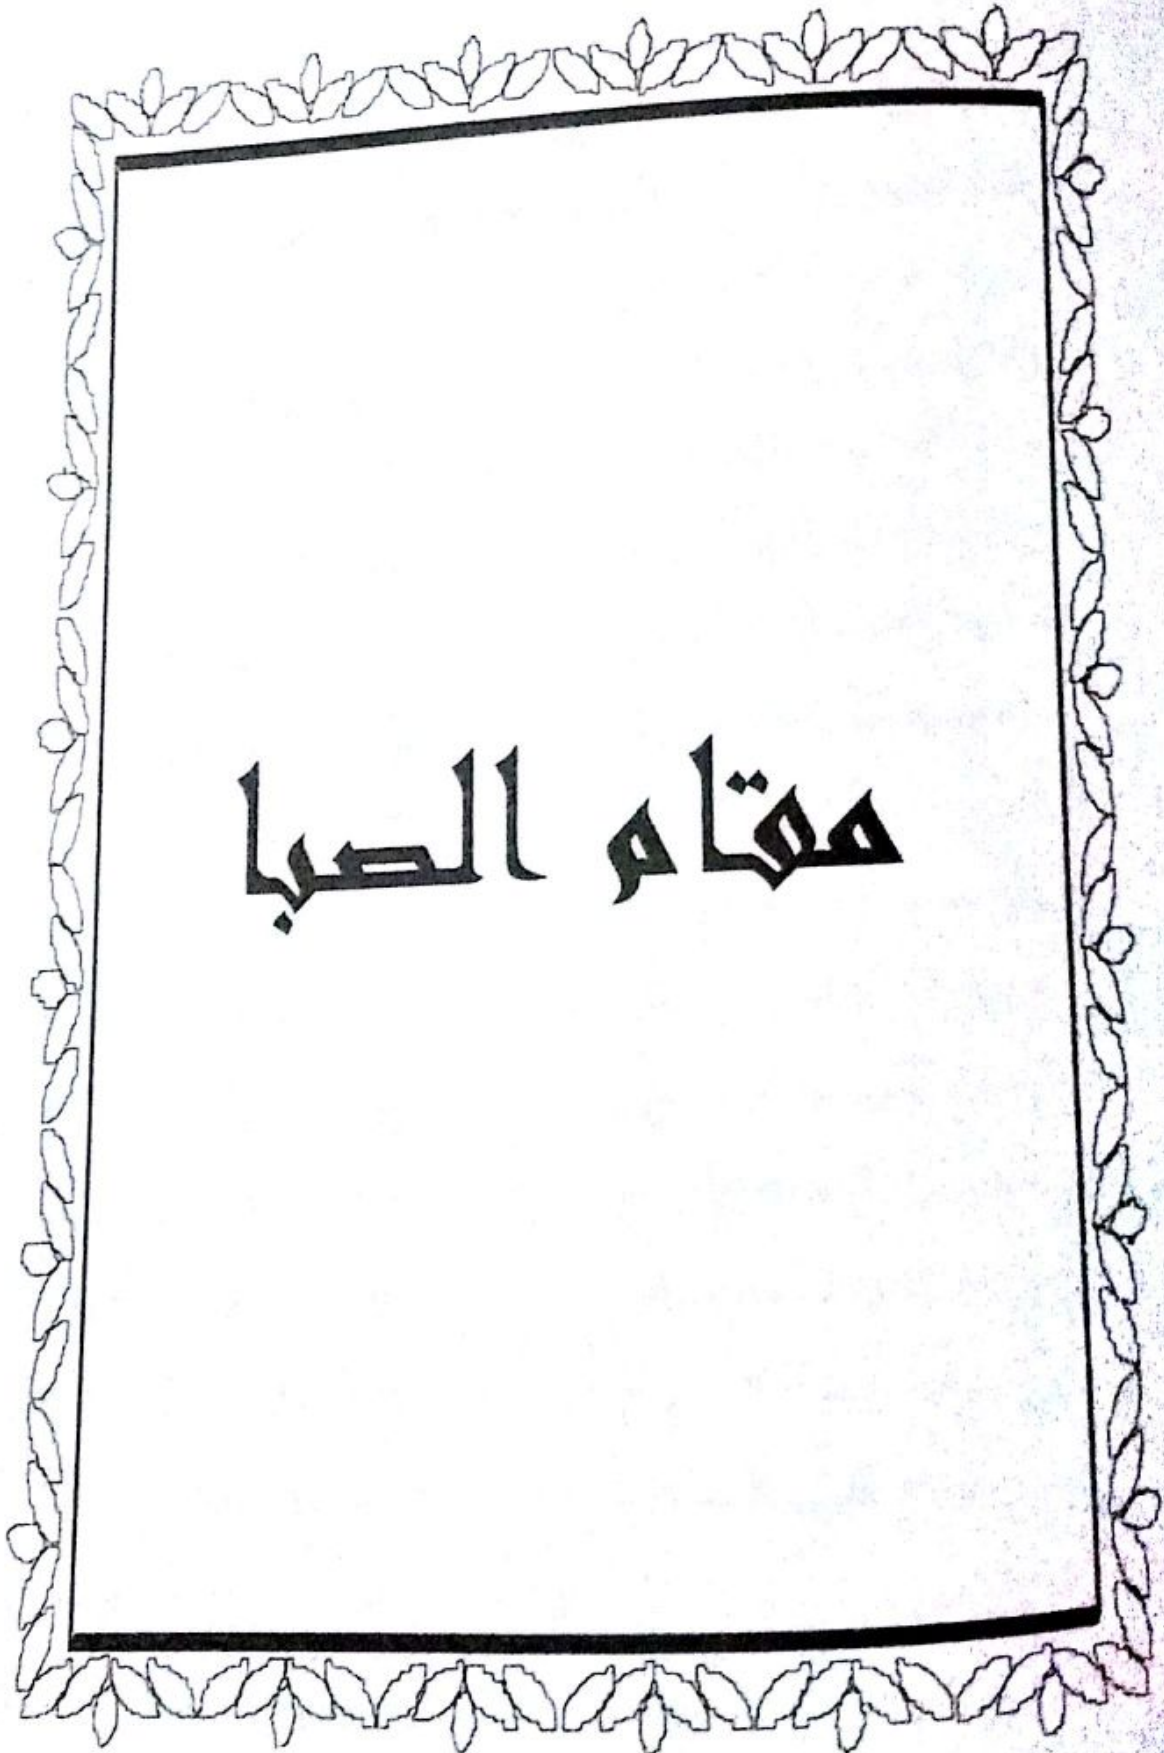 مقام الصبا